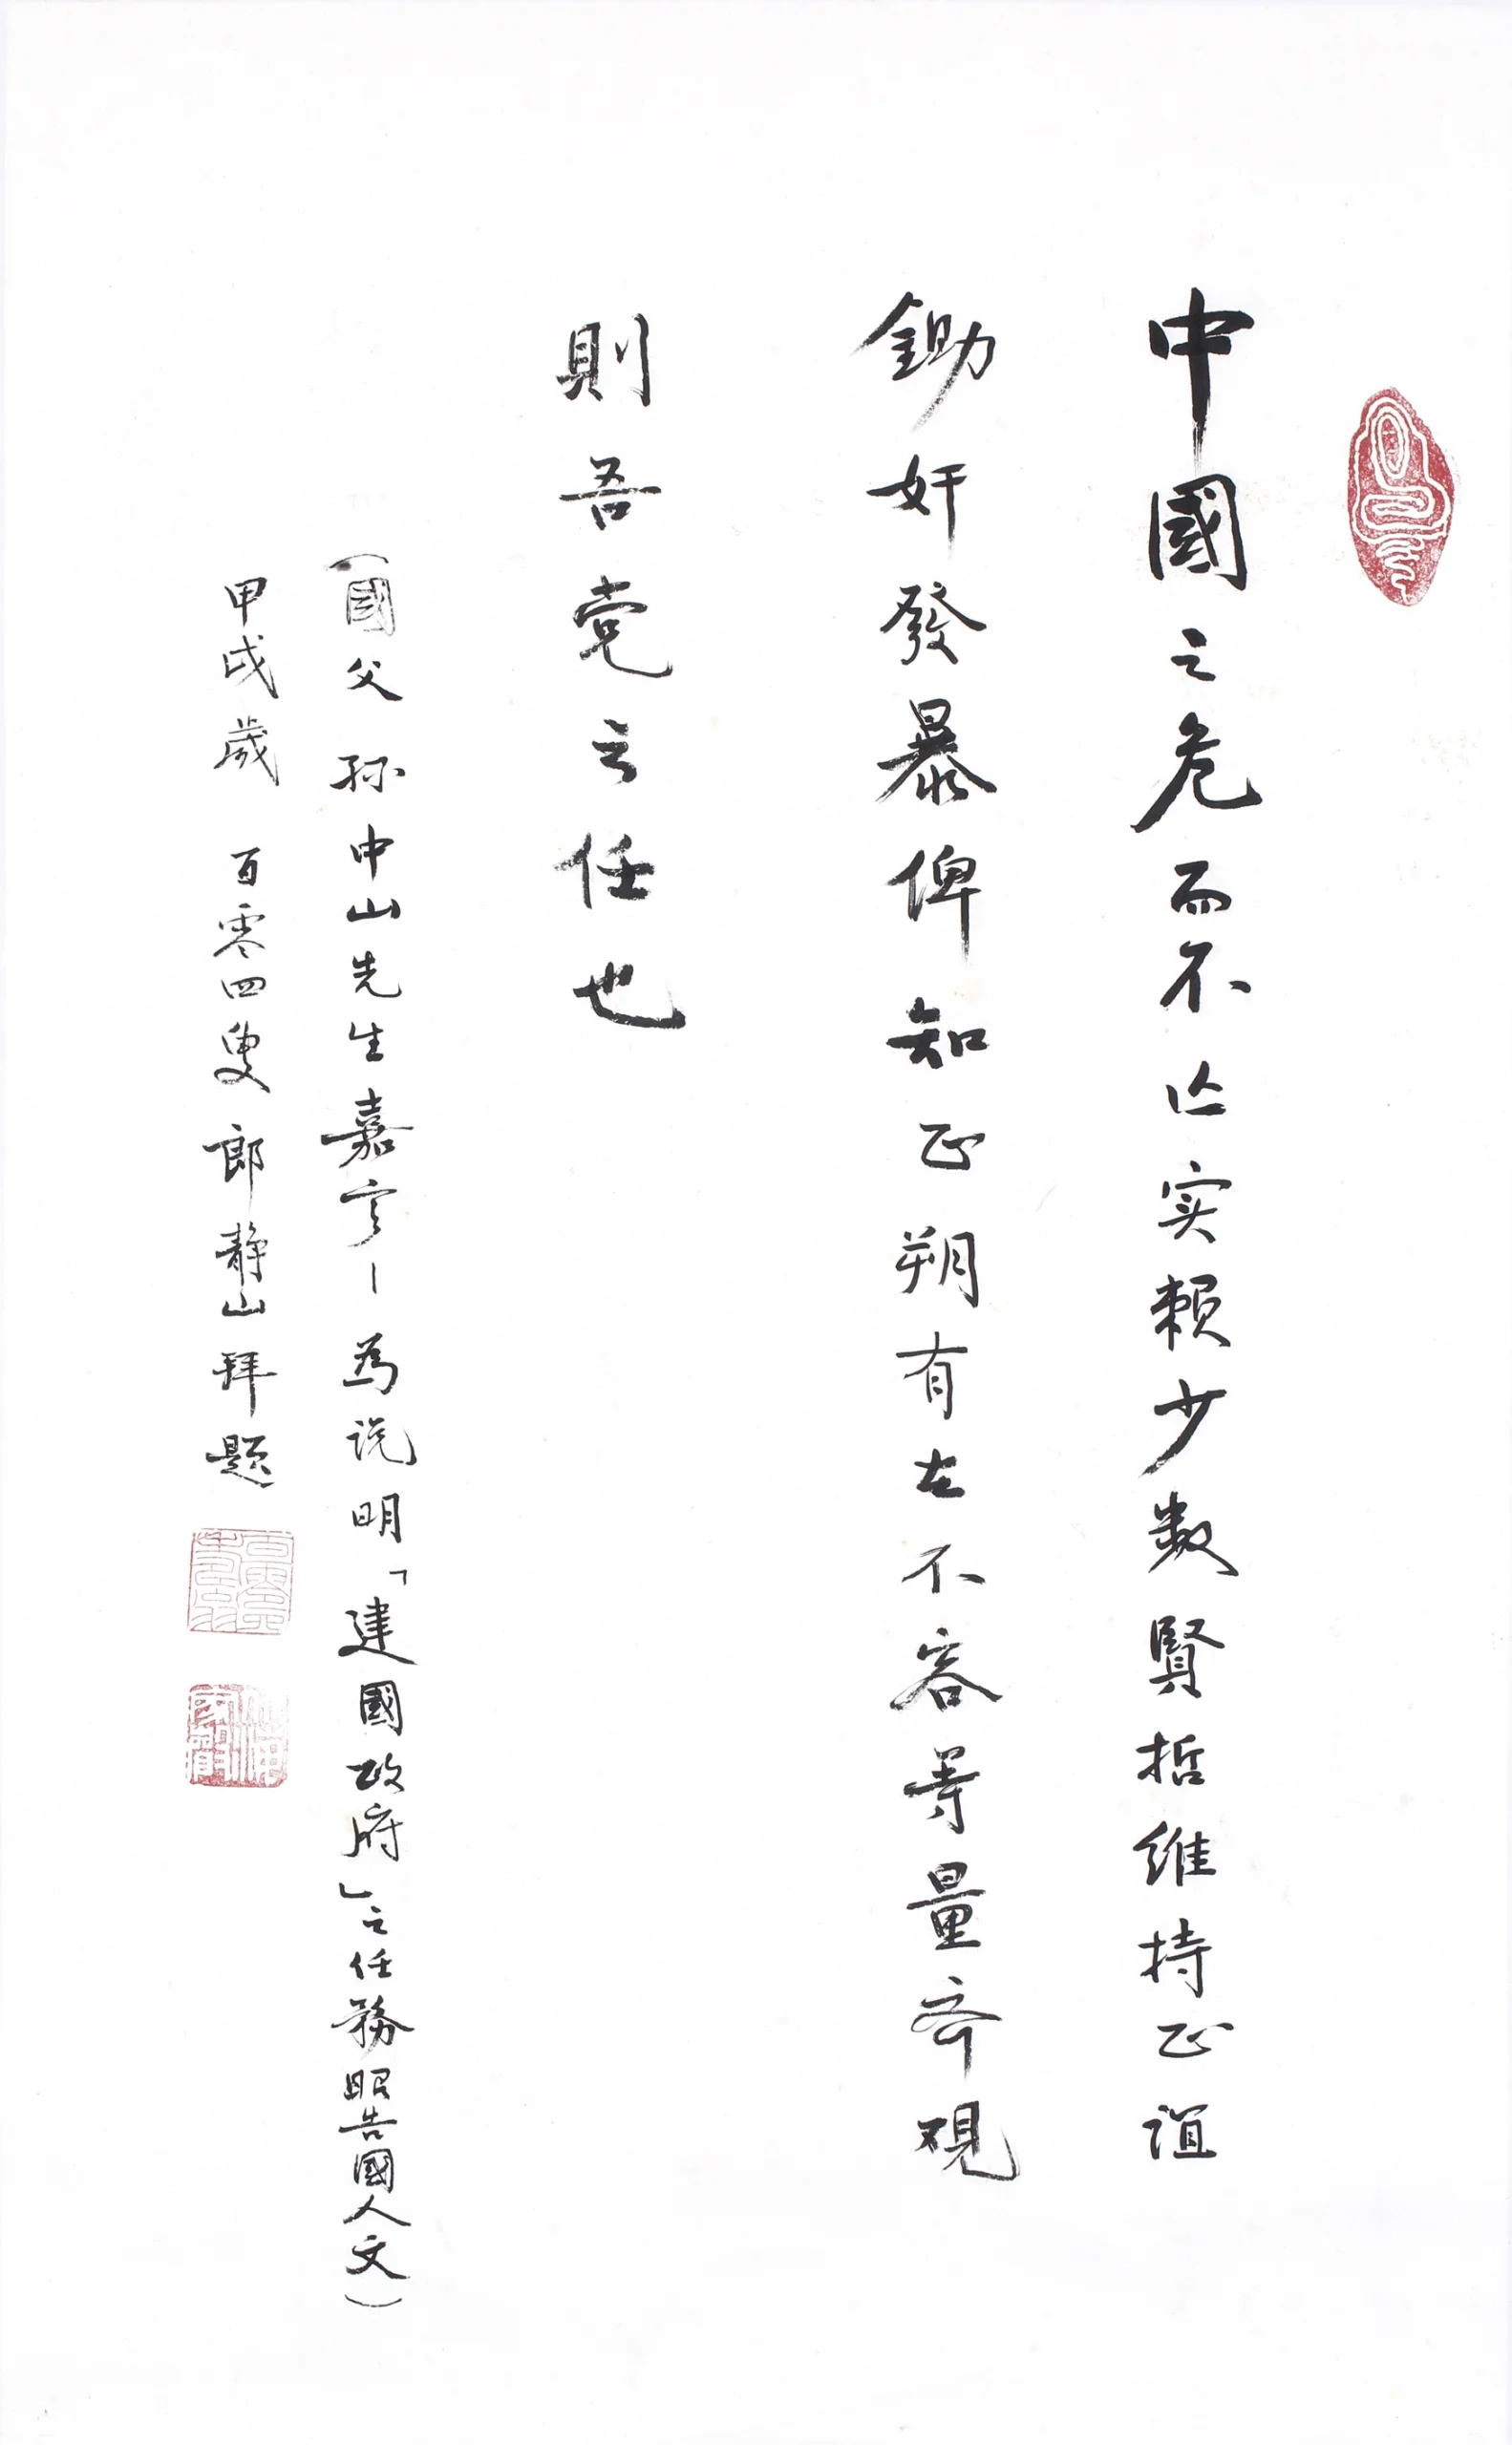 中國之危而不亡实赖少数賢哲維持正誼
鋤奸發暴俾知正朔有在不容等量齐观
則吾党之任也
(國父 孫中山先生嘉言—為说明「建國政府」之任務昭告國人文)
甲戌歲 百零四叟 郎靜山拜题